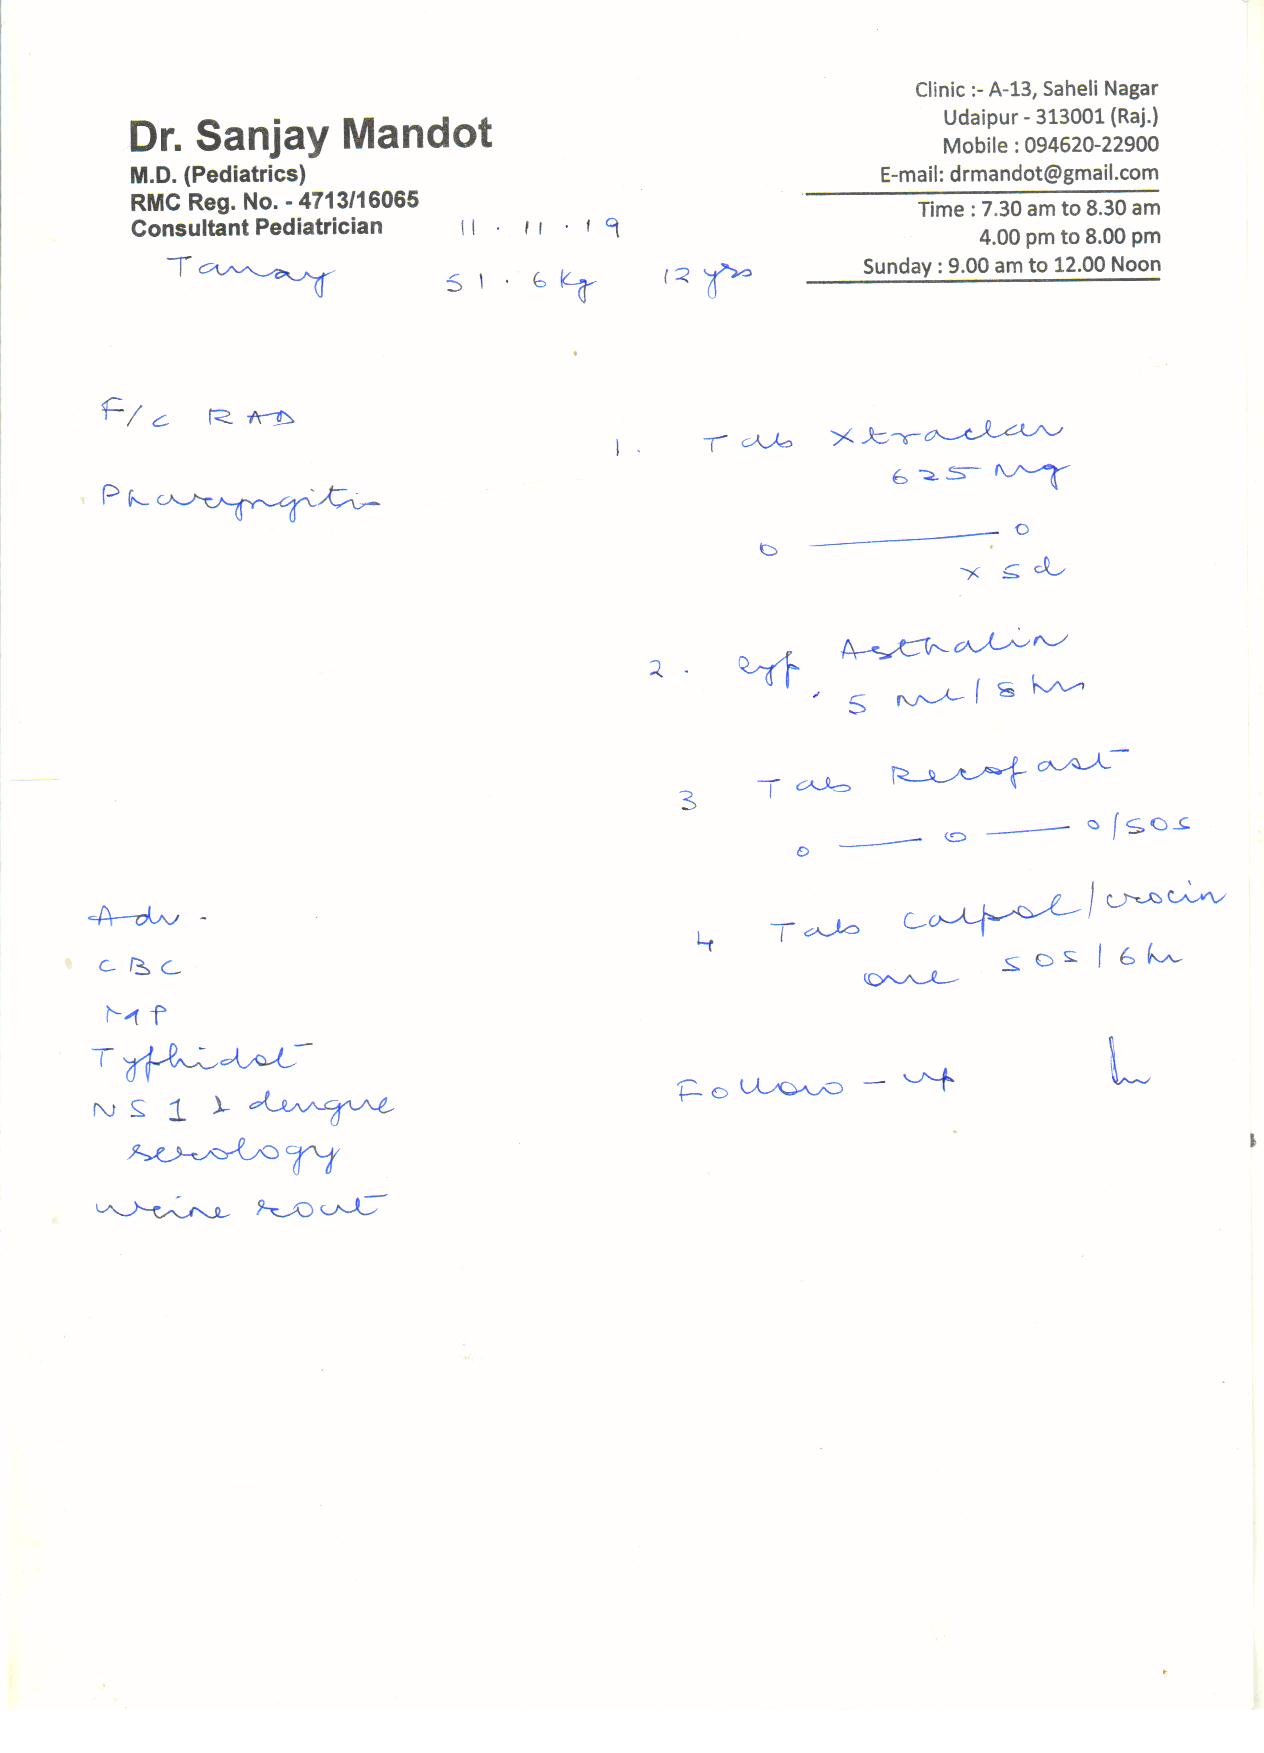 Clinic :- A-13, Saheli Nagar
Udaipur - 313001 (Raj.)
Mobile : 094620-22900
E-mail: drmandot@gmail.com
Time : 7.30 am to 8.30 am
4.00 pm to 8.00 pm
Sunday : 9.00 am to 12.00 Noon
Dr. Sanjay Mandot
M.D. (Pediatrics)
RMC Reg. No. - 4713/16065
Consultant Pediatrician
11 . 11 . 19
Tanay 51.6 kg 12 yrs
F/c RAD
Pharyngitis
Adv -
CBC
MP
Typhidot
NS1 & dengue
serology
urine rout
1. Tab Xtraclav
625 mg
0 — 0
x 5 d
2. Syp. Asthalin
5 ml / 8 hr
3 Tab Recofast
0 — 0 — 0/SOS
4 Tab Calpol/crocin
one SOS / 6 hr
Follow-up